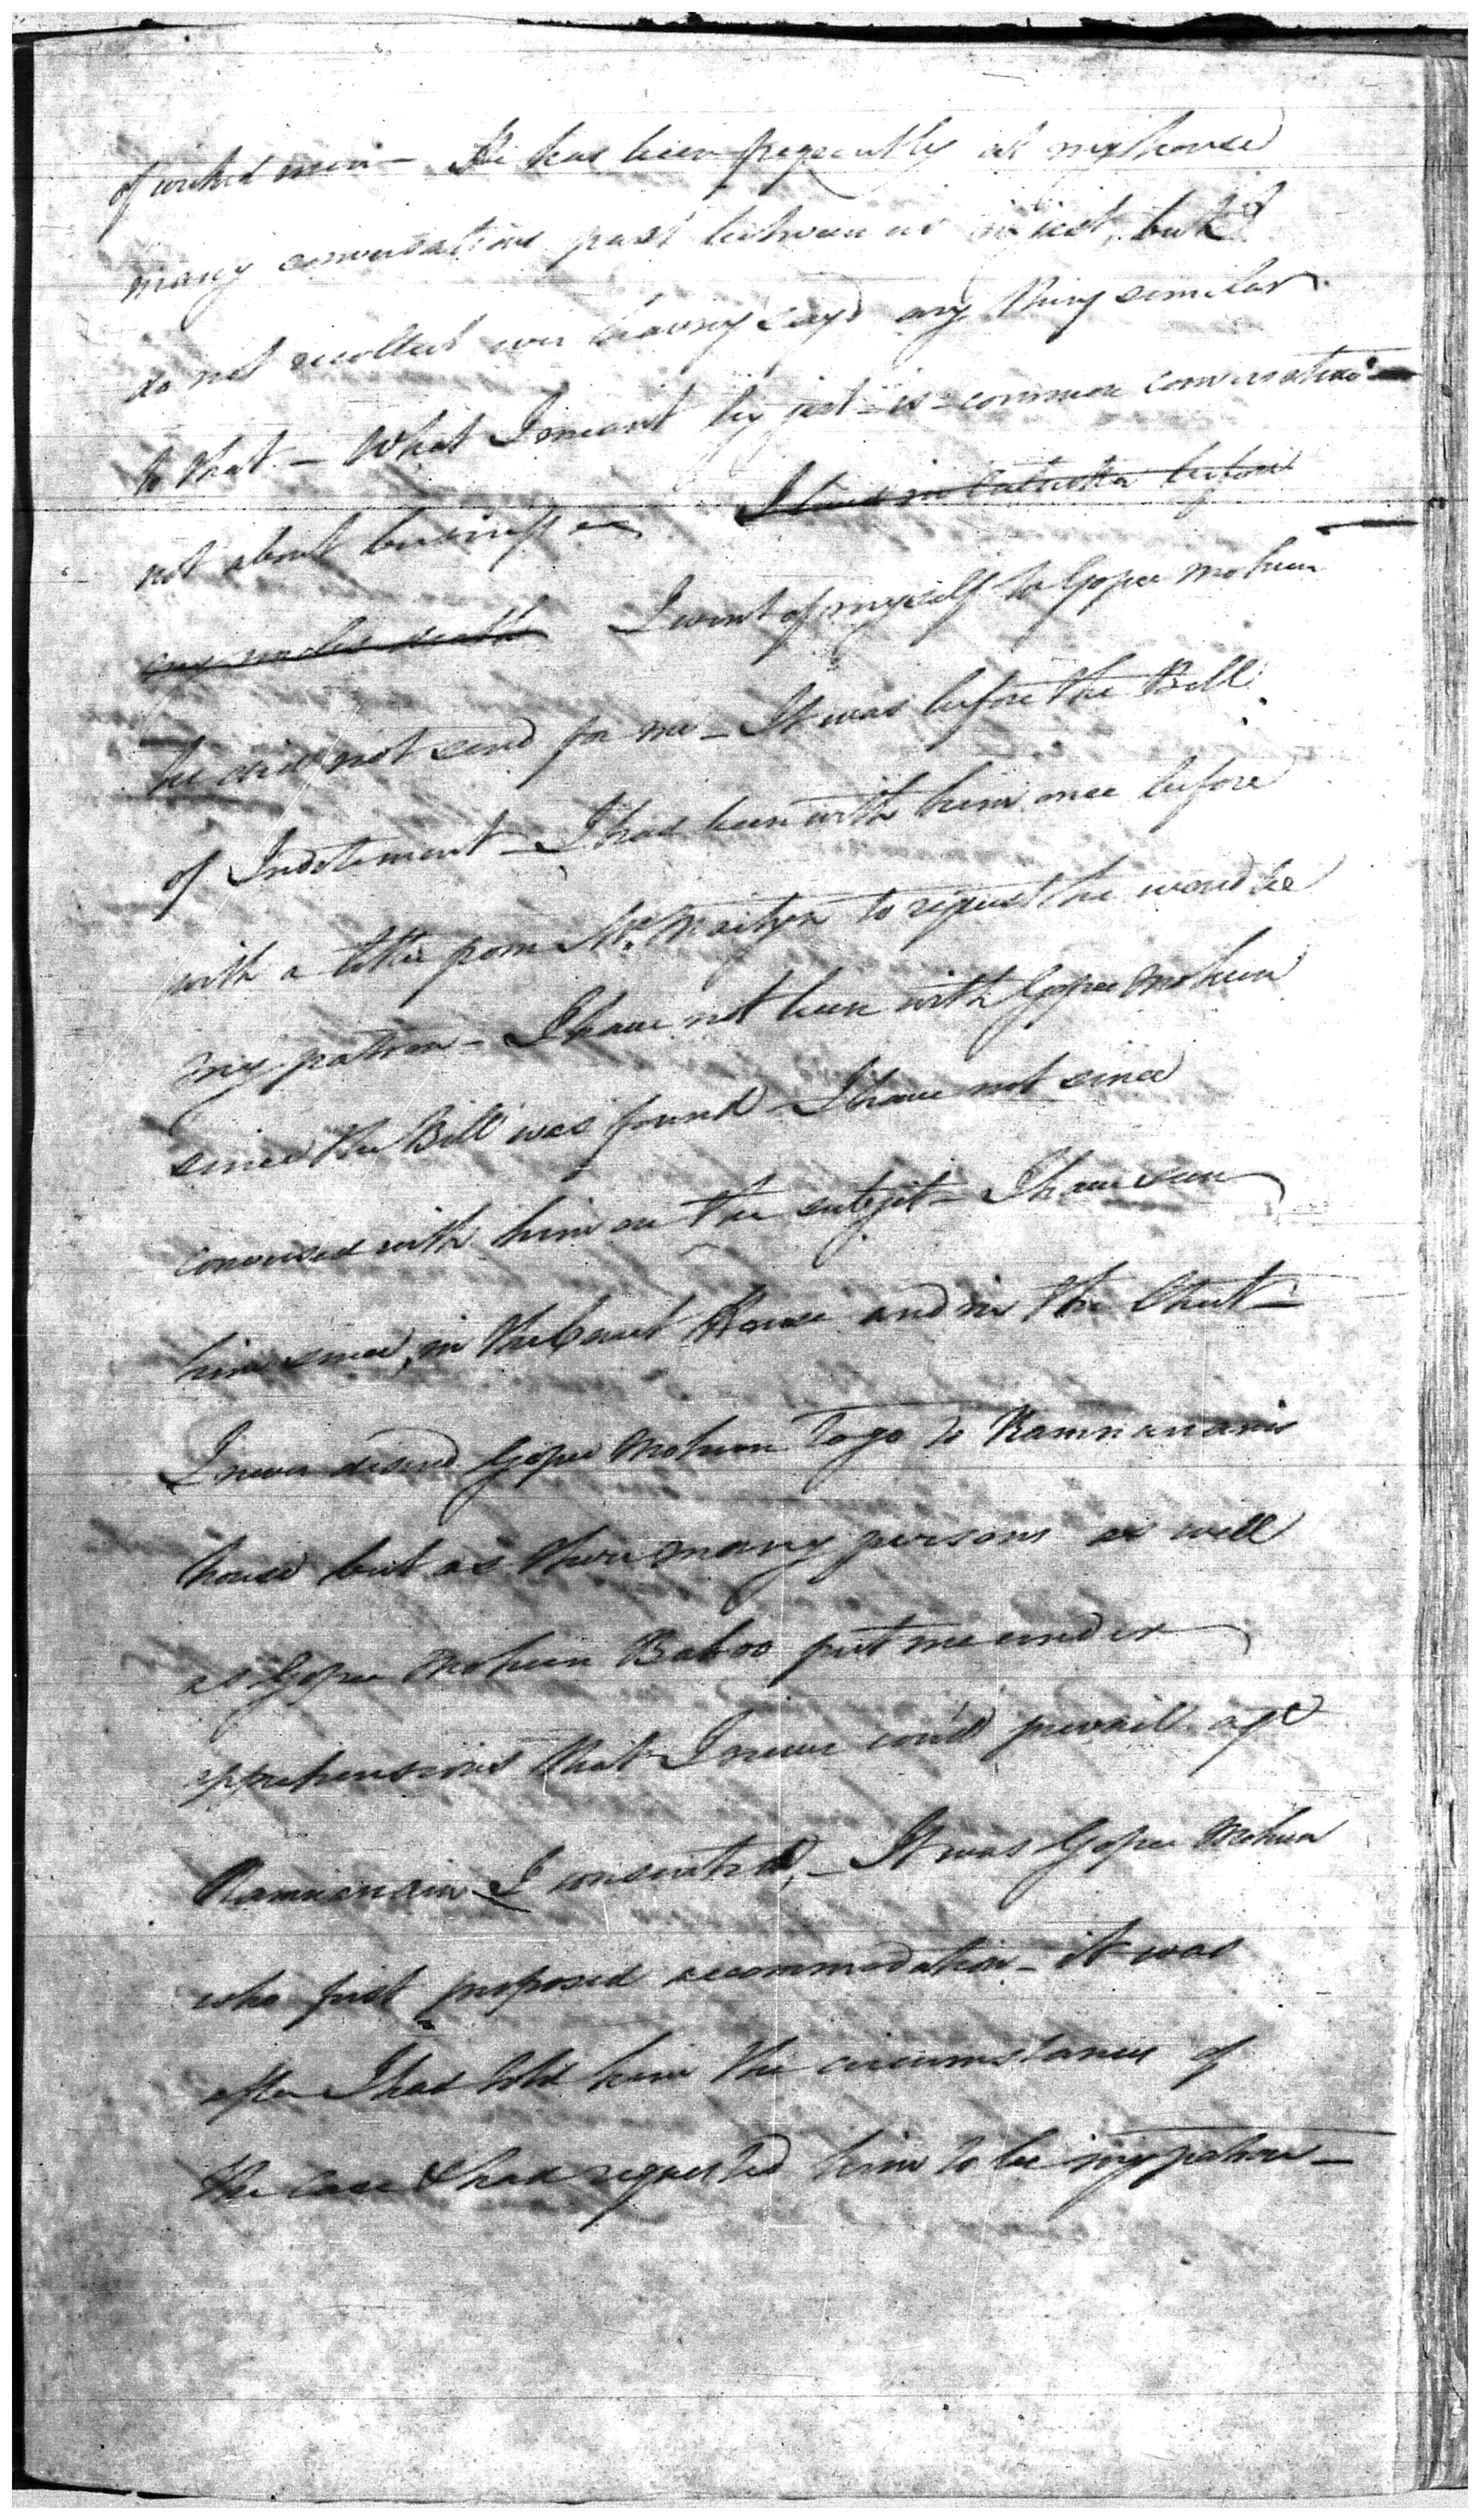 of wicked men – He has been freqeently at my house
many conversations past between us in jest, but I
do not recollect ever having sayd any thing similar
to that – What I meant by jest – is – common conversation –
not about business – I lived in Calcutta before
my uncles death I went of myself to Gopee Mohun
he did not send for me – It was before the Bill
of Indictment – I had been with him once before
with a letter from Mr. to request he woud be
my patron – I have not been with Gopee Mohun
since the Bill was found – I have not since
conversed with him on the subject – I have seen
him since, in the Court House and in the Street –
I never desired Gopee Mohun to go to Ramnarains
house but as there many persons as well
as Gopee Mohun Baboo put me under
apprehensions that I never coud prevail agt
Ramnarain I consented, – It was Gopee Mohun
who first proposed accommodation – it was
after I had told him the circumstances of
the case & had requested him to be my patron –